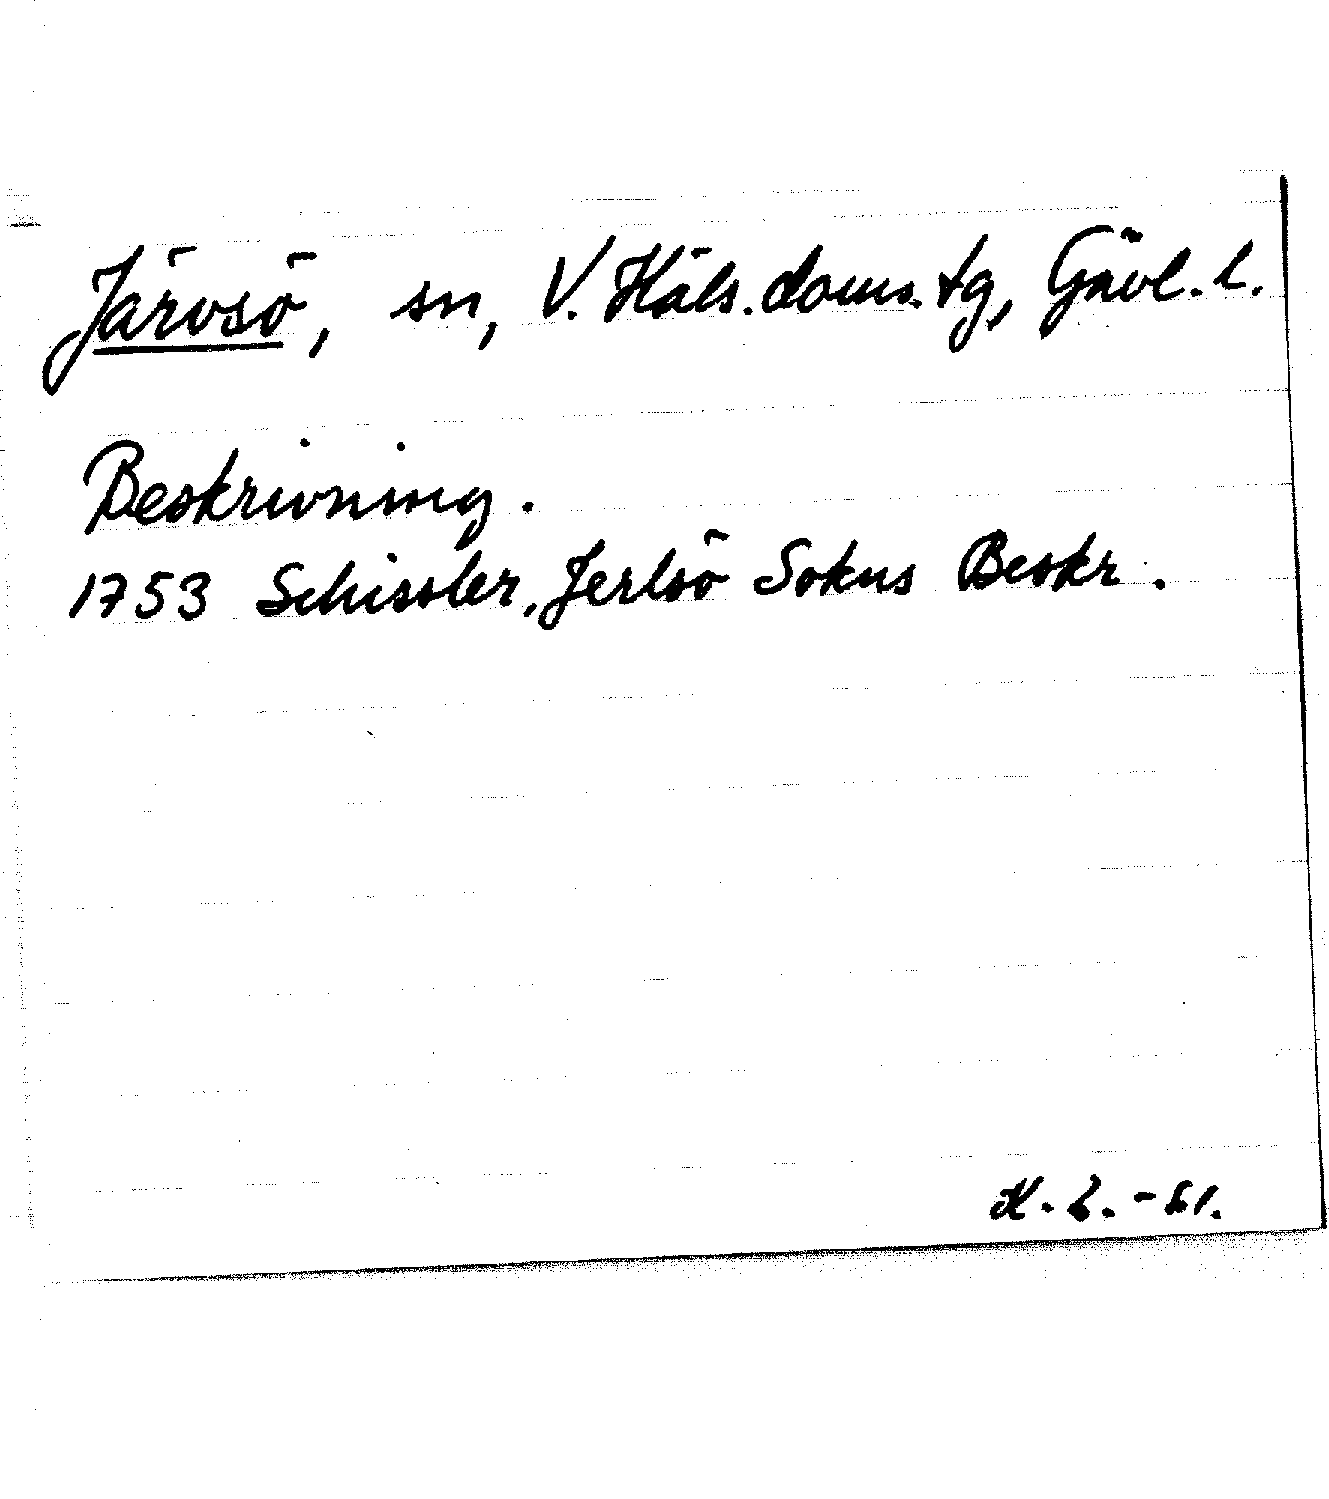 Järvsö, sn, V. Häls. doms. tg, Gävl. l.
Beskrivning.
1753 Schissler, Jerlsö Sokns Beskr.
H. L. -51.